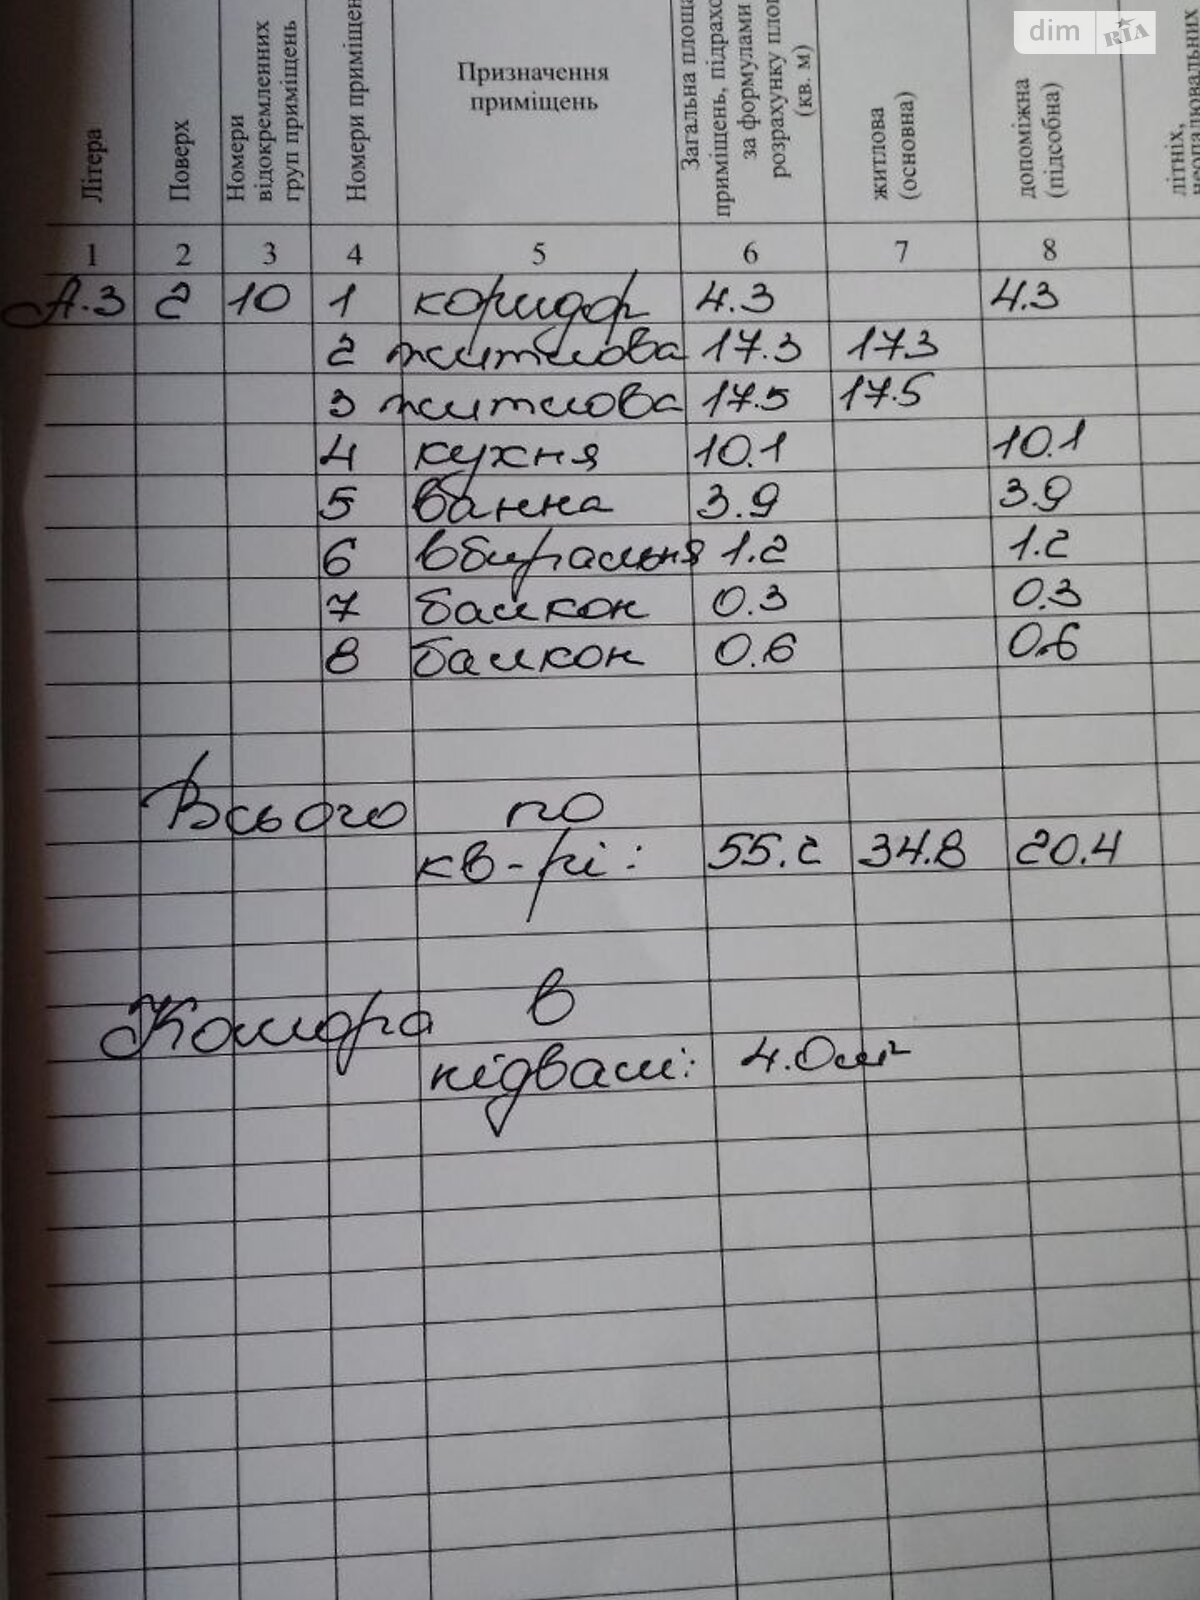 dim RIA
Літера
Поверх
Номери
відокремленних
груп приміщень
Номери приміщен
Призначення
приміщень
Загальна площа
приміщень, підрахо
за формулами
розрахунку пло
(кв. м)
житлова
(основна)
допоміжна
(підсобна)
літніх,
неопалювальних
1 2 3 4 5 6 7 8
А.3 2 10 1 коридор 4.3 4.3
2 житлова 17.3 17.3
3 житлова 17.5 17.5
4 кухня 10.1 10.1
5 ванна 3.9 3.9
6 вбиральня 1.2 1.2
7 балкон 0.3 0.3
8 балкон 0.6 0.6
Всього по
кв-рі: 55.2 34.8 20.4
Комора в
підвалі: 4.0м²